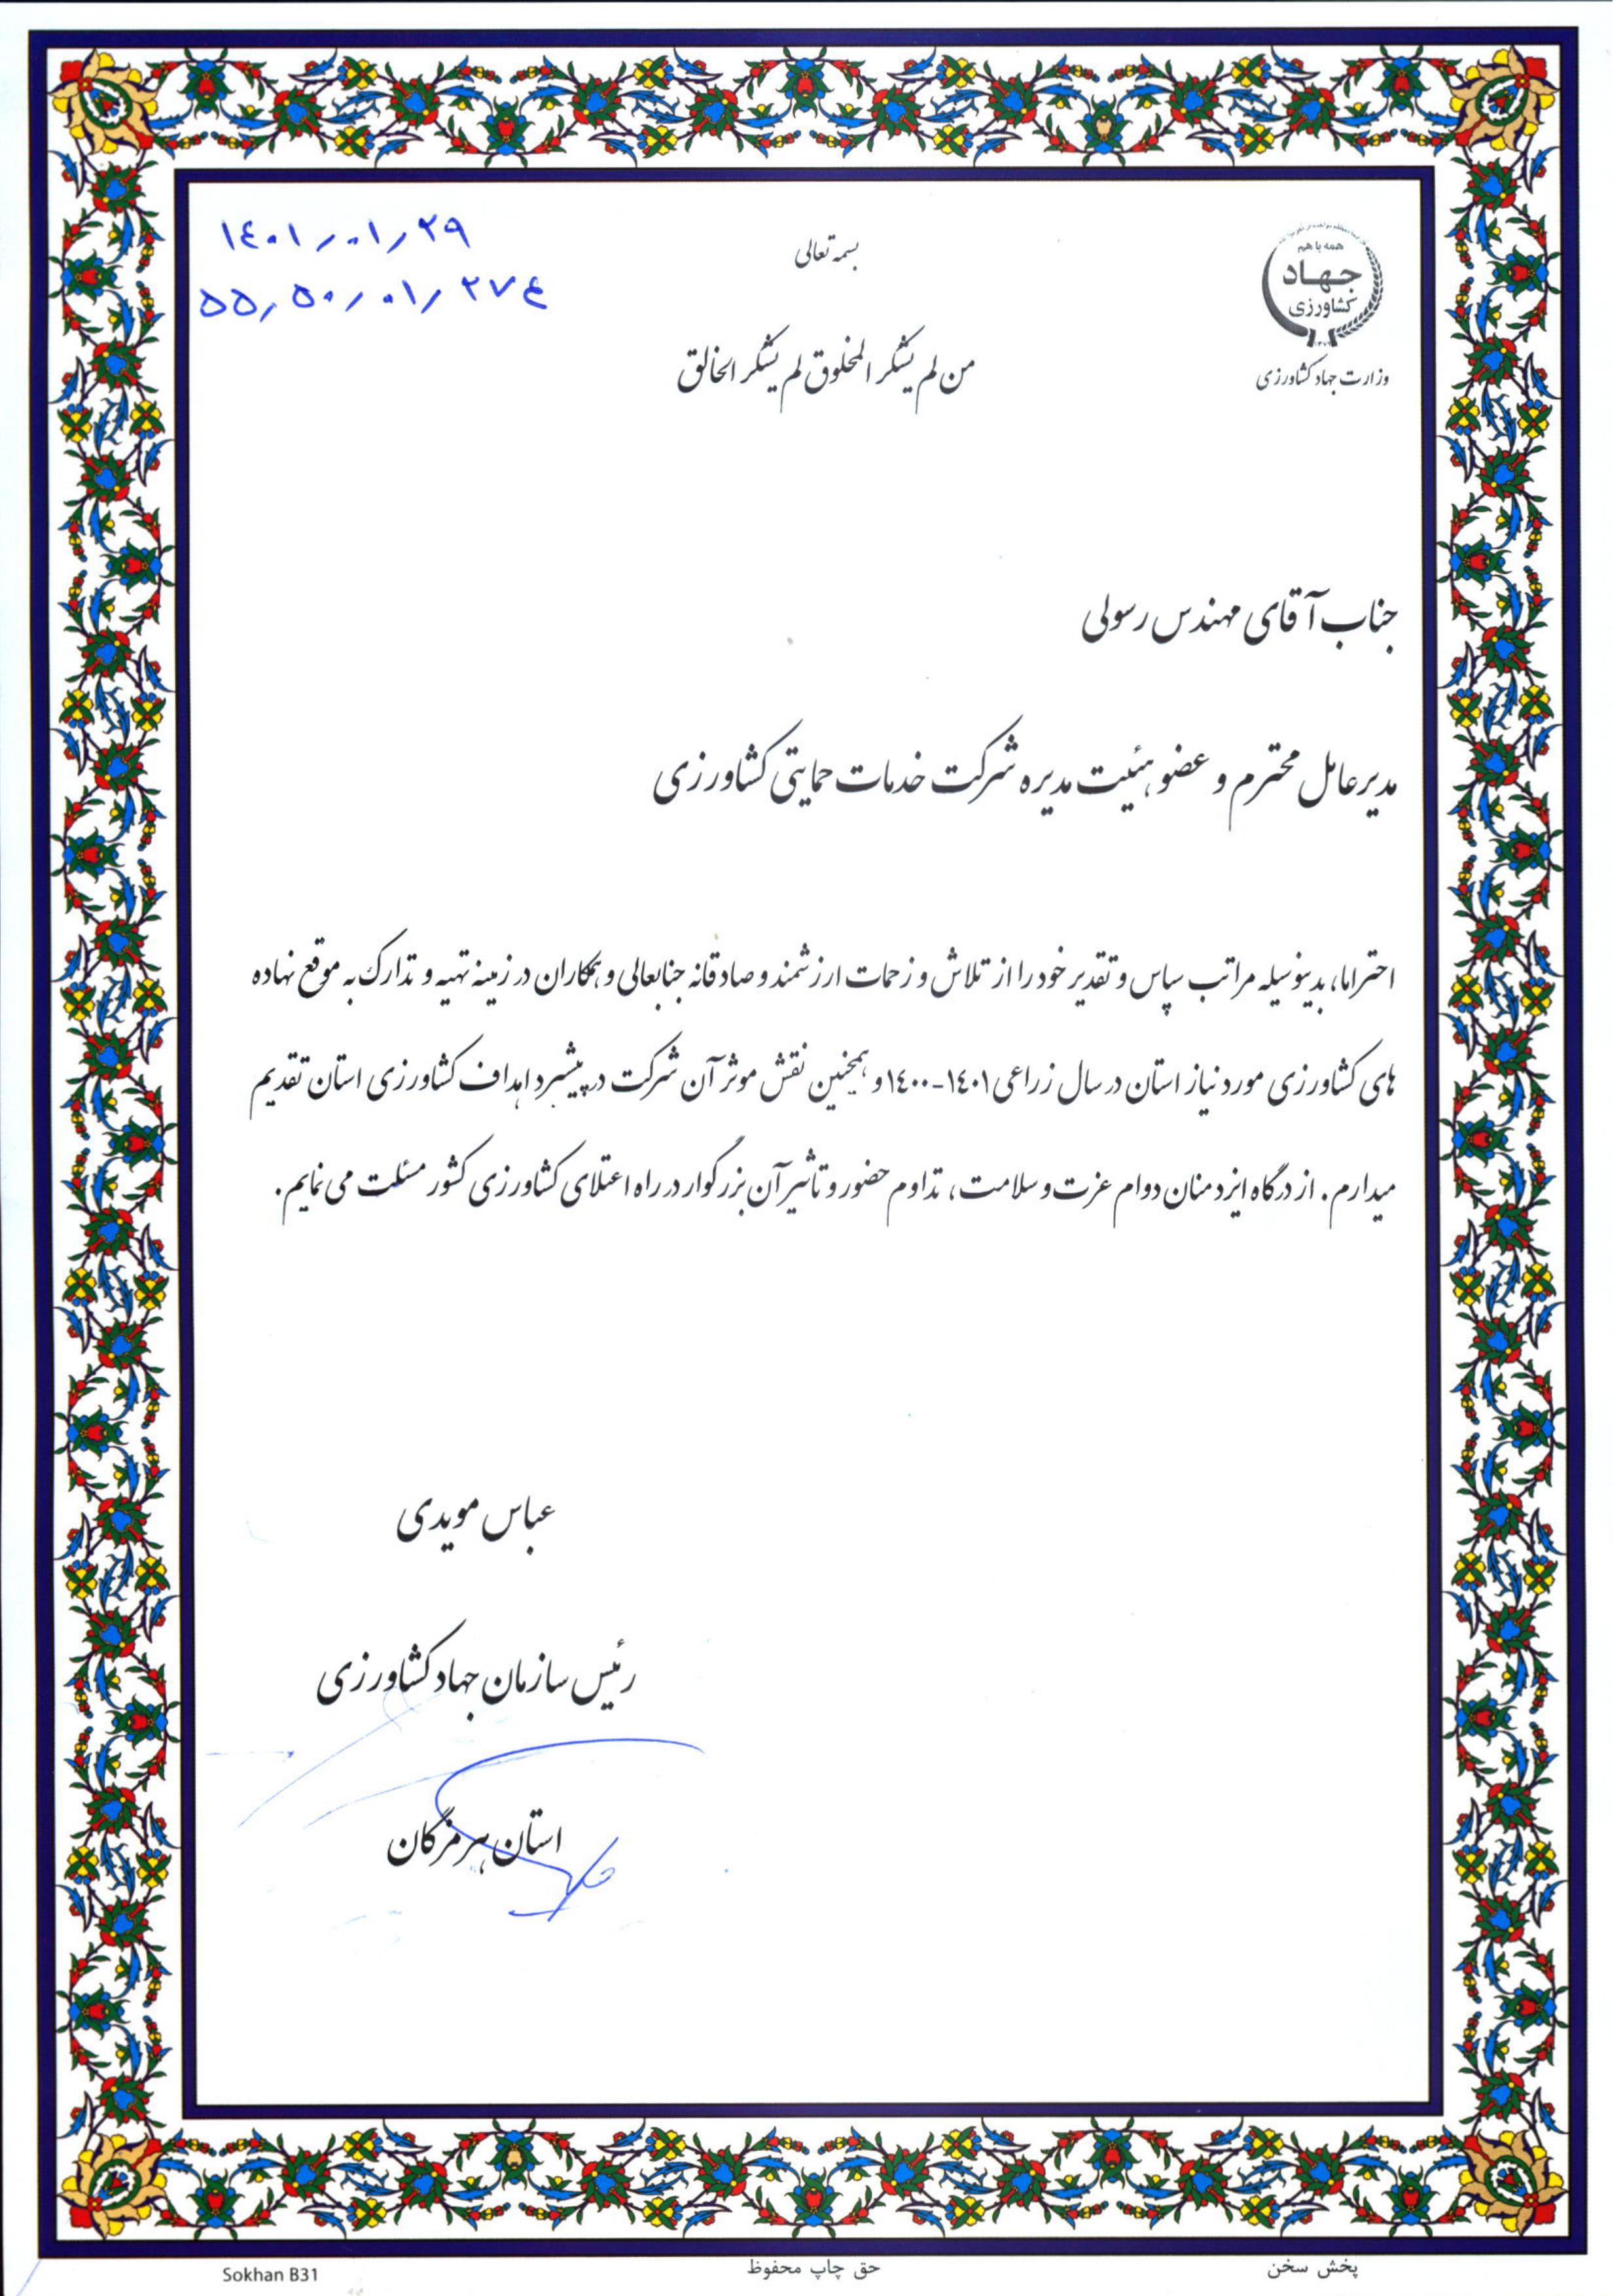 بسمه تعالی
۱۴۰۱/۰۱/۲۹
۵۵/۵۰/۰۱/۲۷۴
همه با هم
جهاد
کشاورزی
وزارت جهاد کشاورزی
من لم یشکر المخلوق لم یشکر الخالق
جناب آقای مهندس رسولی
مدیرعامل محترم و عضو هئیت مدیره شرکت خدمات حمایتی کشاورزی
احتراما، بدینوسیله مراتب سپاس و تقدیر خود را از تلاش و زحمات ارزشمند و صادقانه جنابعالی و همکاران در زمینه تهیه و تدارک به موقع نهاده
های کشاورزی مورد نیاز استان در سال زراعی ۱۴۰۱-۱۴۰۰ و همچنین نقش موثر آن شرکت در پیشبرد اهداف کشاورزی استان تقدیم
میدارم. از درگاه ایزد منان دوام عزت و سلامت، تداوم حضور و تاثیر آن بزرگوار در راه اعتلای کشاورزی کشور مسئلت می نمایم.
عباس مویدی
رئیس سازمان جهاد کشاورزی
استان هرمزگان
پخش سخن
حق چاپ محفوظ
Sokhan B31